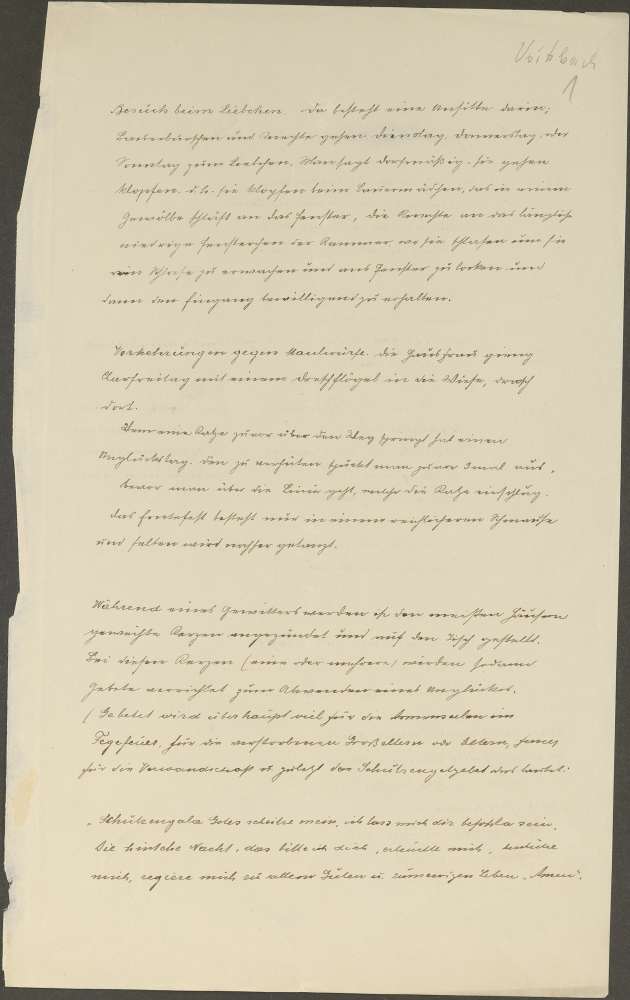 Voitsbach
1
Besuch beim Liebchen. Da besteht eine Unsitte darin;
Bauernburschen und Knechte gehen Dienstag, Donnerstag oder
Sonntag zum Liebchen. Man sagt dorfmäßig: sie gehen
klopfen. d. h. sie klopfen beim Bauernmädchen, das in einem
Gewölbe schläft an das Fenster, die Knechte an das längliche
niedrige Fensterchen der Kammer wo sie schlafen um sie
vom Schlafe zu erwachen und ans Fenster zu locken und
dann den Eingang bewilligend zu erhalten.
Vorkehrungen gegen Maulwürfe. Die Hausfrau gieng
Karfreitag mit einem Dreschflügel in die Wiese, drasch
dort.
Wem eine Katze zuvor über den Weg springt hat einen
Unglückstag. Den zu verhüten spuckt man zuvor 3mal aus,
bevor man über die Linie geht, welche die Katze einschlug.
Das Erntefest besteht nur in einem reichlicheren Schmause
und selten wird nachher getanzt.
Während eines Gewitters werden in den meisten Häusern
geweihte Kerzen angezündet und auf den Tisch gestellt.
Bei diesen Kerzen (eine oder mehrere) werden sodann
Gebete verrichtet zum Abwenden eines Unglückes.
(Gebetet wird überhaupt viel für die Armenseelen im
Fegefeuer, für die verstorbenen Großeltern oder Eltern, ferner
für die Verwandschaft u. zuletzt das Schutzengelgebet das lautet:
"Schutzengala Gotes scheitze mein, ich lass mich dir befohla sein,
Die hintche Nacht, das bitte ich dich, erleuchte mich,
mich, regiere mich zu allem Guten u. zum ewigen Leben. Amen".